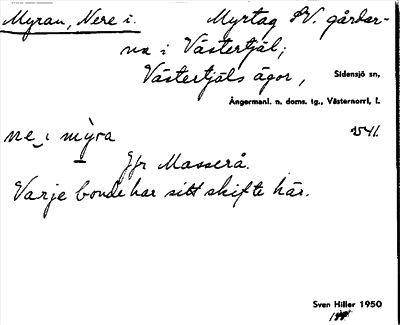 Myran, Nere i. Myrtag SV. gårdar-
na i Västertjäl;
Västertjäls ägor, Sidensjö sn,
Ångermanl. n. doms. tg., Västernorrl. l.
ne i mỳra 1541.
Jfr Masserå.
Varje bonde har sitt skifte här.
Sven Hiller 1950